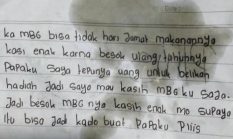 ka MBG bisa tidak hari Jumat makanannya
kasi enak karna besok ulang tahunnya
Papaku saya tepunya uang untuk belikan
hadiah Jadi saya mau kasih MBG ku saja.
Jadi besok MBG nya kasih enak mo supaya
itu bisa Jad kado buat PaPaku Pliis